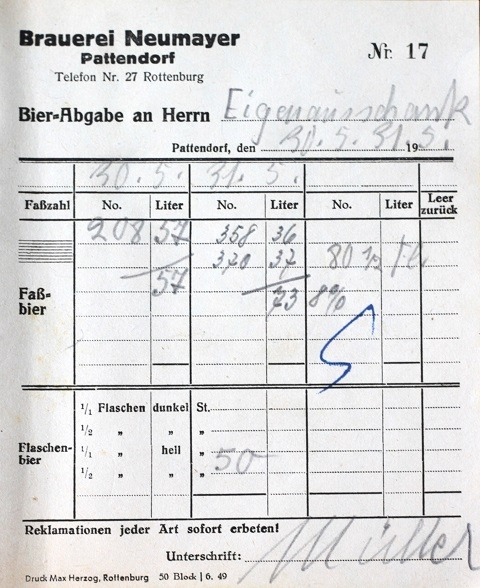 Brauerei Neumayer
Pattendorf
Telefon Nr. 27 Rottenburg
Nr. 17
Bier-Abgabe an Herrn Eigenausschank
Pattendorf, den 30. 5. 31. 5. 19
30. 5. 31. 5.
Faßzahl No. Liter No. Liter No. Liter Leer zurück
208 57 358 36
370 37 80 1/2 Fl
Faß-bier 57 73 8%
1/1 Flaschen dunkel St.
1/2 „ „ „
Flaschen-bier 1/1 „ hell „ 50
1/2 „ „ „
Reklamationen jeder Art sofort erbeten!
Unterschrift: Müller
Druck Max Herzog, Rottenburg 50 Block | 6. 49